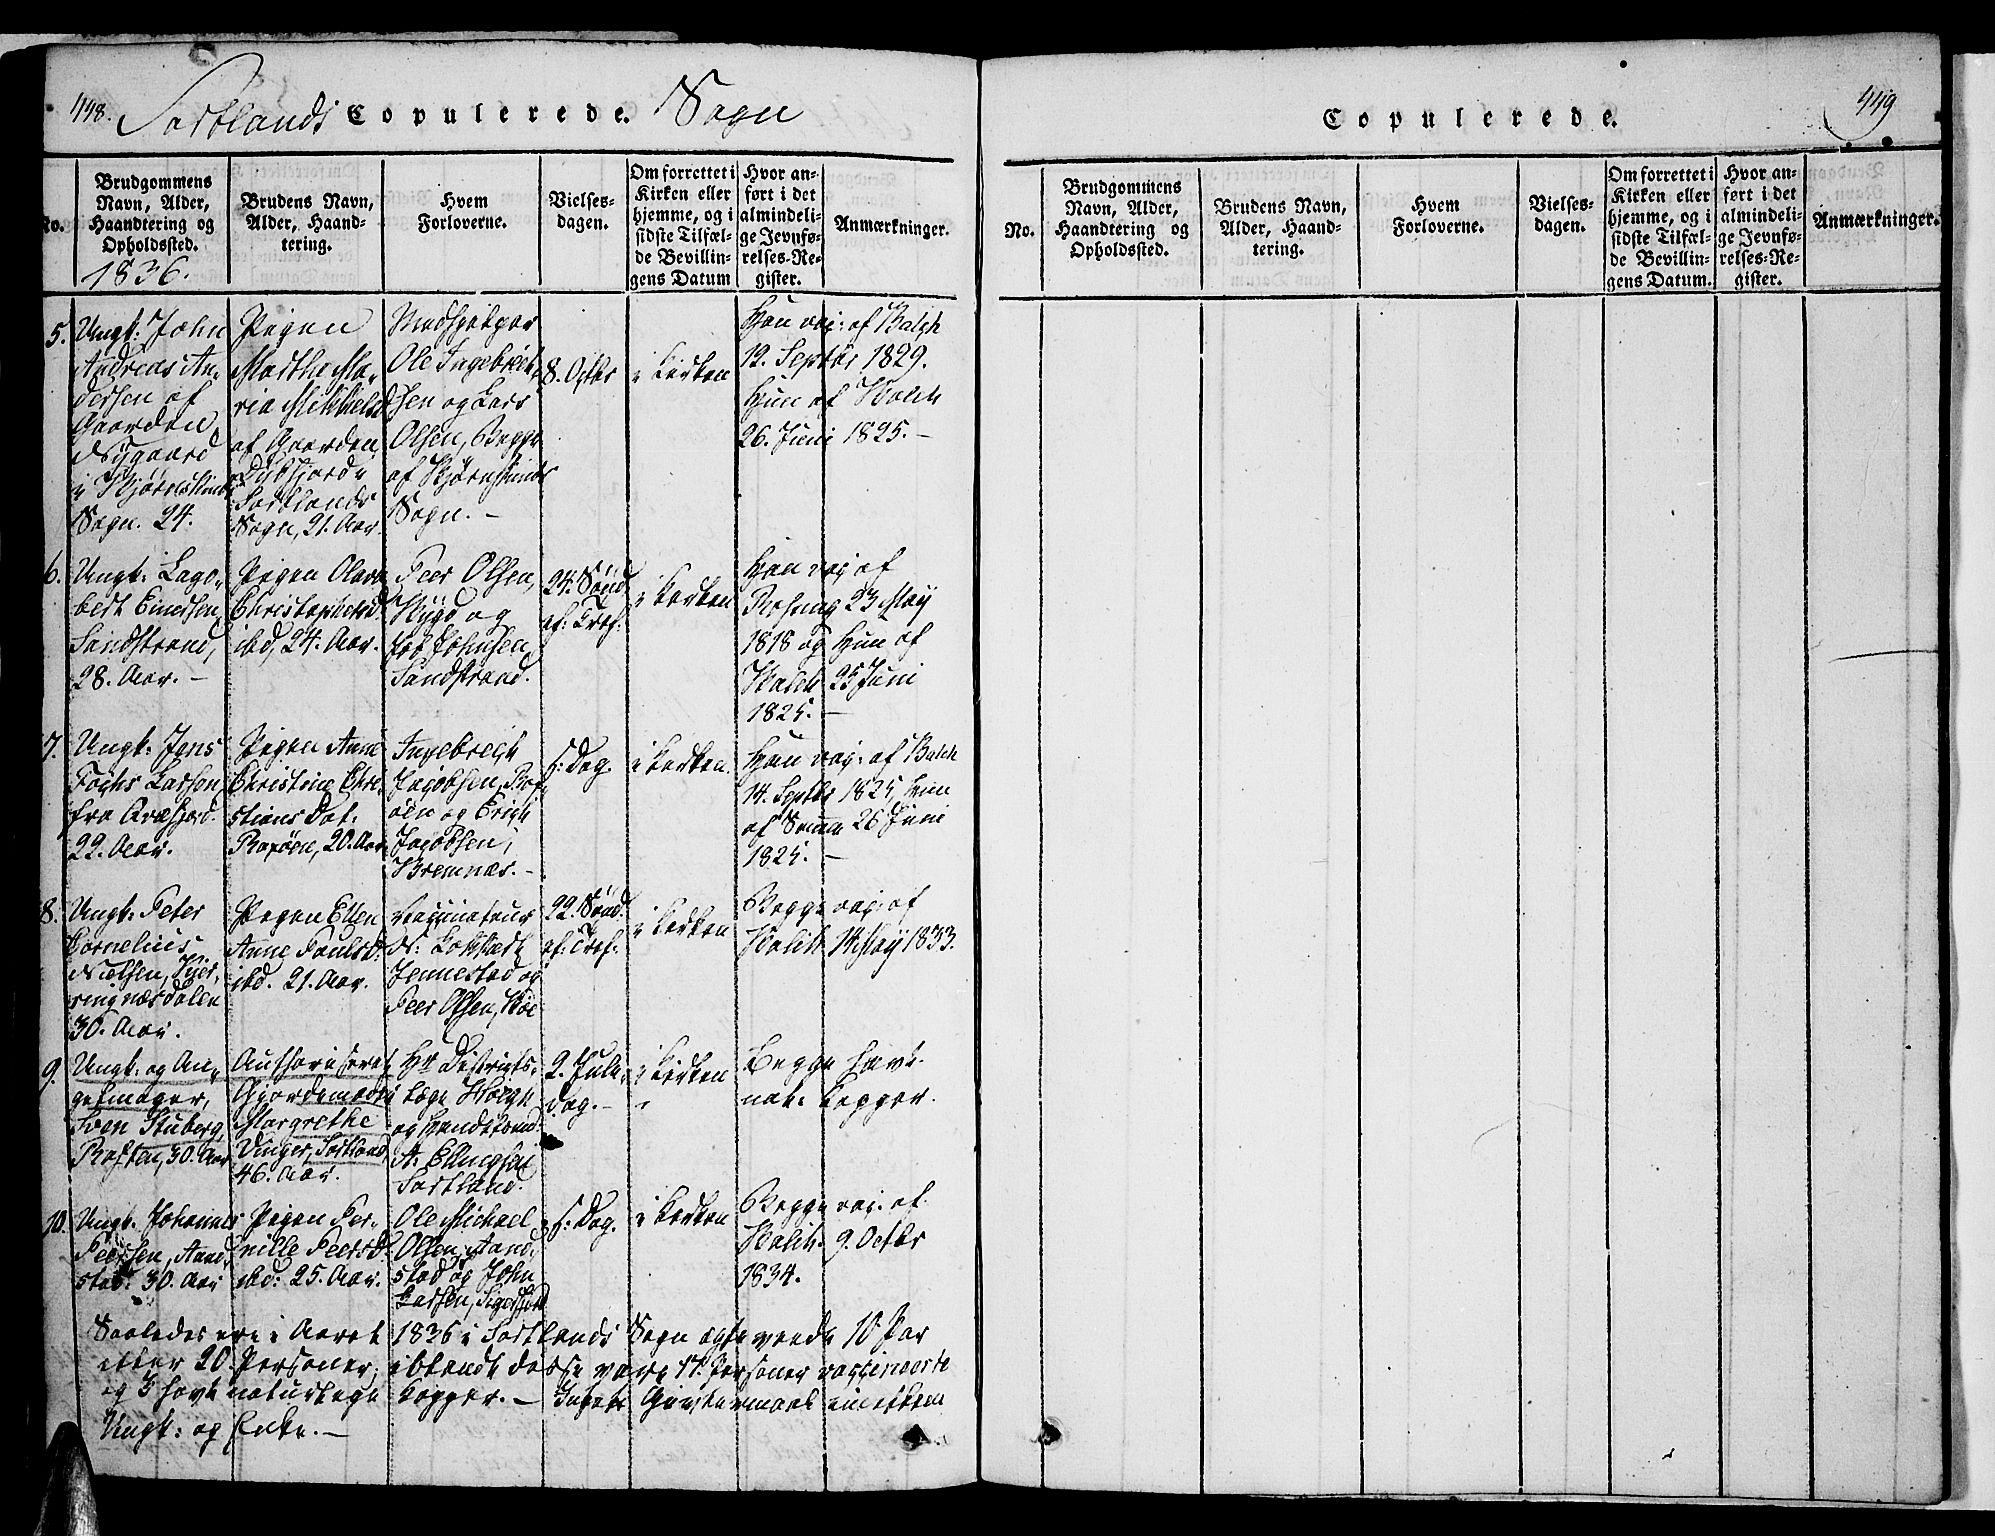 448.
Sortlands Copulerede. Sogn
No.
Brudgommens
Navn, Alder,
Haandtering og
Opholdssted.
1836.
Brudens Navn,
Alder, Haand-
tering.
Hvem
Forloverne.
Vielses-
dagen.
Om forrettet i
Kirken eller
hjemme, og i
sidste Tilfæl-
de Bevillin-
gens Datum
Hvor an-
ført i det
almindeli-
ge Jevnfø-
relses-Re-
gister.
Anmærkninger.
5.
Ungk: John
Andreas An-
dersen af
Gaarden
Nygaard
i
Sogn. 24.
Pigen
Martha Ma-
ria Mikkelsd
af Gaarden
Sortlands
Sogn, 21. Aar.
Medhjelper
Ole Ingebrict-
sen og Lars
Olsen, Begge
af
Sogn. –
8. Octbr
i Kirken
Han vac: af Balch
12. Septbr 1829.
Hun af Walch
26. Juni 1825. –
6.
Ungk:
bert Einersen,
Sandstrand,
28. Aar. –
Pigen Olava
Christophersd.
ibd, 24. Aar.
Peer Olsen,
og
Johnsen,
Sandstrand.
24. Sönd.
ef: Tref:
i Kirken
Han vac: af
23 May
1818 og Hun af
Walch 25 Juni
1825. –
7.
Ungk: Jens
Larsen
fra
22. Aar.
Pigen Anne
Christine Chri-
stians Dat:
20. Aar
Ingebrigt
Jacobsen,
öen og Erich
Jacobsen,
Bremnæs. –
s: Dag
i Kirken.
Han vac: af Balch
14. Septbr 1825, Hun
af Samme 26 Juni
1825. –
8.
Ungk: Peter
Cornelius
Nielsen,
ringnæsdalen
30. Aar.
Pigen Ellen
Anne Poulsd.
ibd. 21. Aar.
Vaccinateur
N:
Jennestad og
Peer Olsen,
22. Sönd.
ef: Tref:
i Kirken
Begge vac: af
Walch 14 May 1833.
9.
Ungk: og An-
Iven Stuberg,
Roften, 30. Aar
Authoriseret
Gjordemoder
Margrethe
Unger, Sortland,
46. Aar.
Hr Districts-
læge
og Handelsmd:
A: Ellingsen
Sortland.
2. Jule-
dag. –
i Kirken
Begge havt
nat: Kopper.
10.
Ungk: Johannes
Peersen, Aand-
stad. 30. Aar
Pigen Per-
nille Peersd.
ibd: 25. Aar.
Ole Michael
Olsen, Aand-
stad og John
Larsen, Sigerfjord
s: Dag.
i Kirken
Begge vac: af
Walch. 9. Octbr
1834.
Saaledes ere i Aaret 1836 i Sortlands Sogn ægteviede 10 Par
eller 20 Personer, iblandt disse vare 17. Personer vaccinerte
og 3 havt naturlige Kopper. – Intet Giftermaal imellem
Ungk: og Enke. –
449
Copulerede.
No.
Brudgommens
Navn, Alder,
Haandtering og
Opholdssted.
Brudens Navn,
Alder, Haand-
tering.
Hvem
Forloverne.
Vielses-
dagen.
Om forrettet i
Kirken eller
hjemme, og i
sidste Tilfæl-
de Bevillin-
gens Datum.
Hvor an-
ført i det
almindeli-
ge Jevnfø-
relses-Re-
gister.
Anmærkninger.